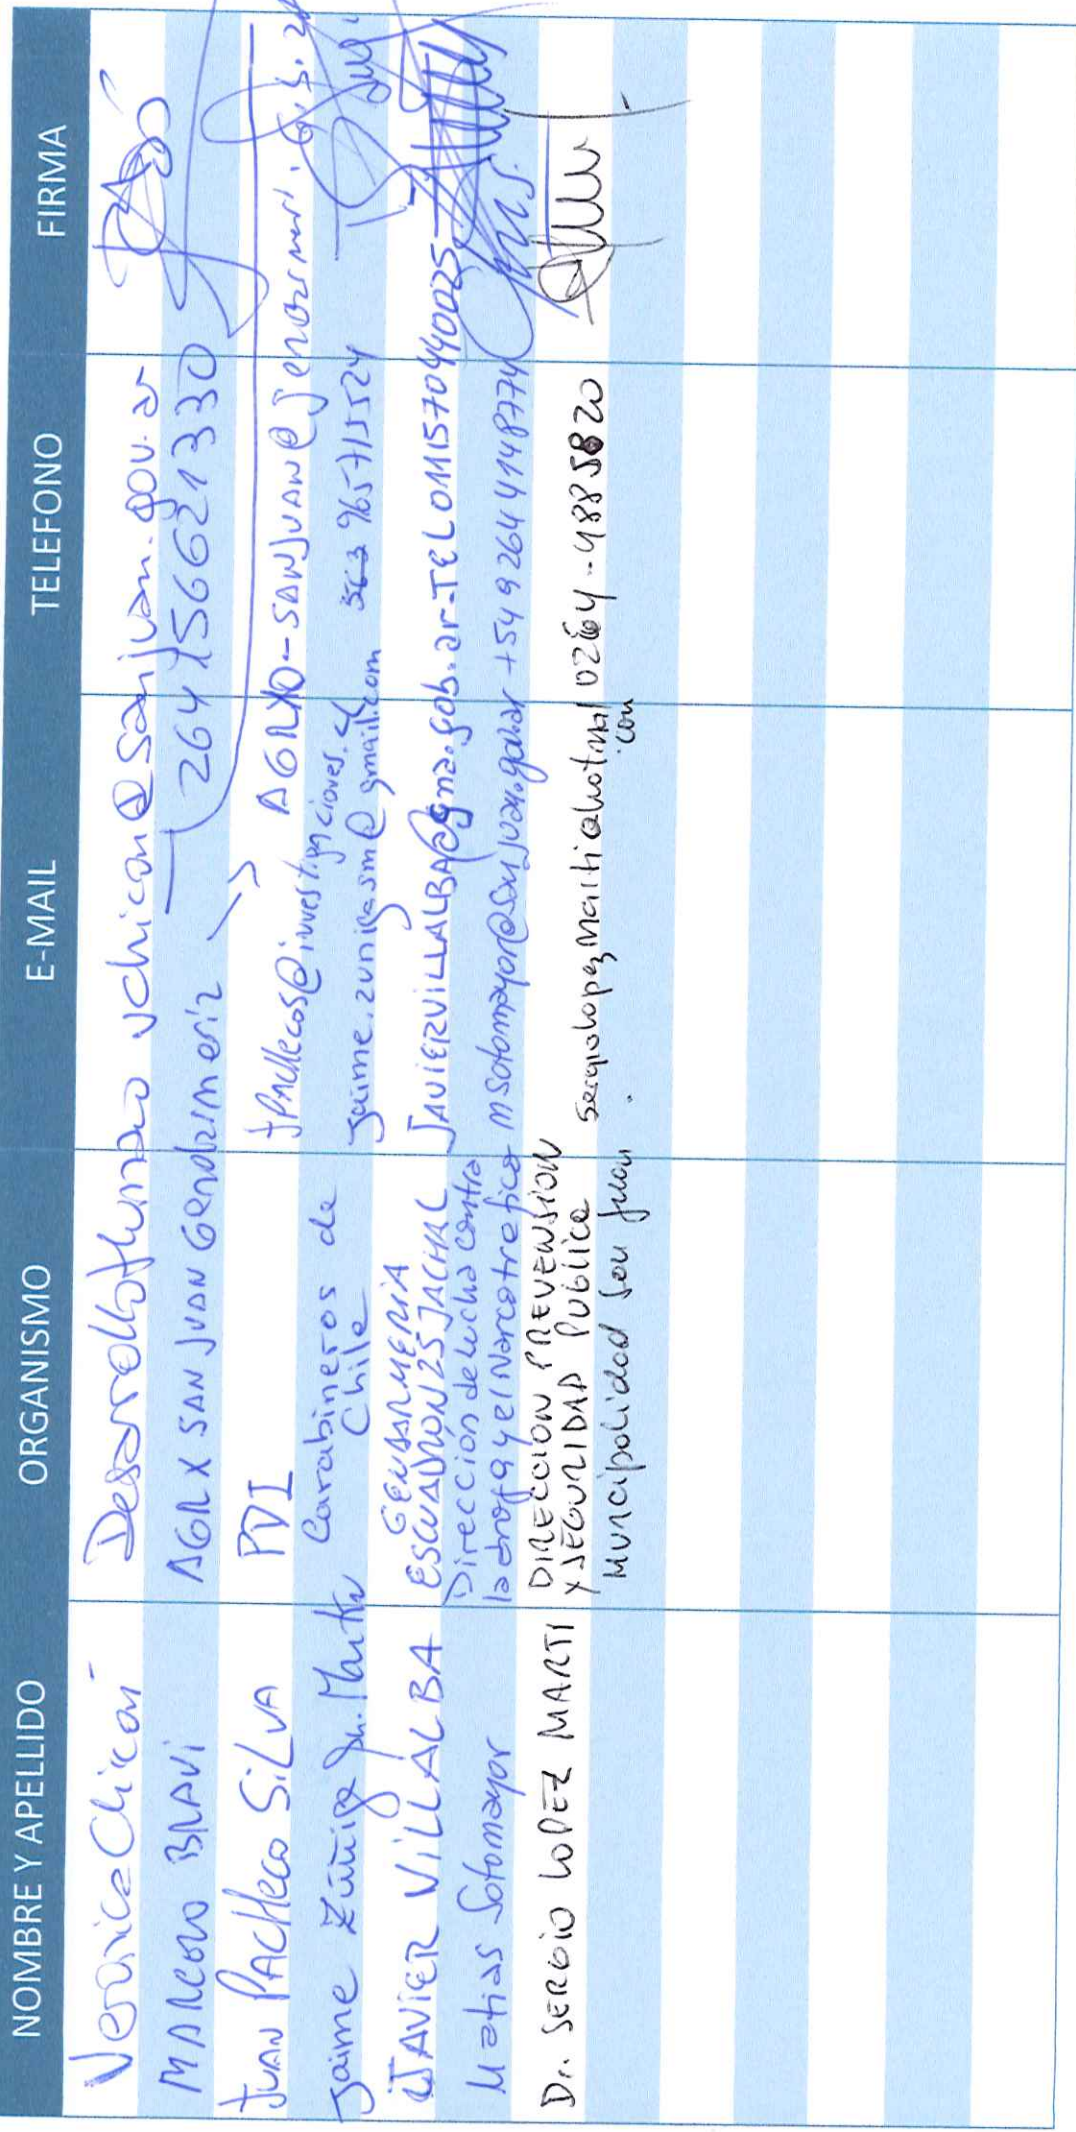 NOMBRE Y APELLIDO ORGANISMO E-MAIL TELEFONO FIRMA
Veronica Chicon Desarrollo Humano vchicon@sanjuan.gov.ar
MARCOVO BRAVI AGRX SAN JUAN Gendarmeria 264 156621330
AGRXO-SANJUAN@
JUAN PACHECO SILVA PDI JPACHECOS@investigaciones.cl
Jaime Zúñiga Sn. Martin Carabineros de Chile jaime.zunigasm@gmail.com 965715524
JAVIER VILLALBA GENDARMERIA
ESCUADRON 25 JACHAL JAVIERVILLALBA@gna.gob.ar-TEL 011570440025
Matias Sotomayor Dirección de lucha contra
la droga y el Narcotrafico msotomayor@sanjuan.gob.ar +549264 4148774
Dr. SERGIO LOPEZ MARTI DIRECCION PREVENSION
Y SEGURIDAD PUBLICA sergiolopezmarti@hotmail 0264-4885820
.com
MUNICIPALIDAD San Juan.